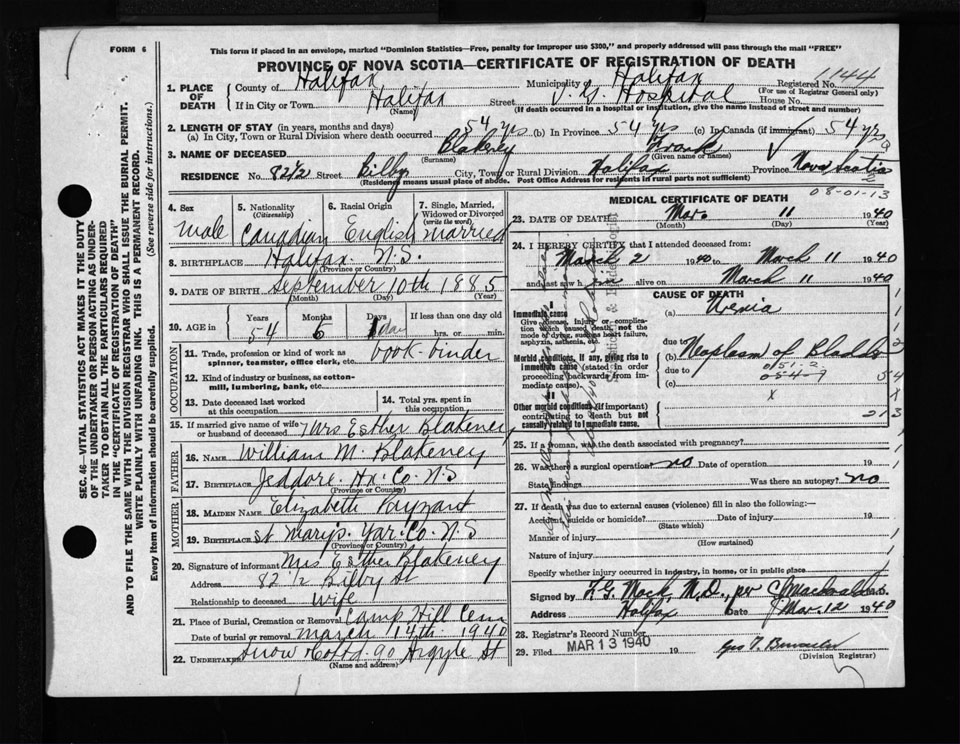 FORM 6
This form if placed in an envelope, marked "Dominion Statistics—Free, penalty for improper use $300," and properly addressed will pass through the mail "FREE"
PROVINCE OF NOVA SCOTIA—CERTIFICATE OF REGISTRATION OF DEATH
1. PLACE OF DEATH
County of Halifax Municipality of Halifax Registered No. 1144
(For use of Registrar General only)
If in City or Town Halifax Street V. G. Hospital House No.
(Name) (If death occurred in a hospital or institution, give the name instead of street and number)
2. LENGTH OF STAY (in years, months and days)
(a) In City, Town or Rural Division where death occurred 54 yrs (b) In Province 54 yrs (c) In Canada (if immigrant) 54 yrs
3. NAME OF DECEASED Blakeney Frank
(Surname) (Given name or names)
RESIDENCE No. 82 1/2 Street Bilby City, Town or Rural Division Halifax Province Nova Scotia
(Residency means usual place of abode. Post Office Address for residents in rural parts not sufficient)
4. Sex male
5. Nationality (Citizenship) Canadian
6. Racial Origin English
7. Single, Married, Widowed or Divorced (write the word) married
8. BIRTHPLACE Halifax N.S.
(Province or Country)
9. DATE OF BIRTH September 10th 1885
(Month) (Day) (Year)
10. AGE in Years Months Days If less than one day old
54 6 1 day hrs. or min.
OCCUPATION
11. Trade, profession or kind of work as spinner, teamster, office clerk, etc. book-binder
12. Kind of industry or business, as cotton-mill, lumbering, bank, etc.
13. Date deceased last worked at this occupation
14. Total yrs. spent in this occupation
15. If married give name of wife or husband of deceased Mrs Esther Blakeney
FATHER
16. NAME William M. Blakeney
17. BIRTHPLACE Jeddore Hx. Co. N.S
(Province or Country)
MOTHER
18. MAIDEN NAME Elizabeth Paynard
19. BIRTHPLACE St Mary's Yar. Co. N.S
(Province or Country)
20. Signature of informant Mrs Esther Blakeney
Address 82 1/2 Bilby St
Relationship to deceased wife
21. Place of Burial, Cremation or Removal Camp Hill Cem
Date of burial or removal march 14th 1940
22. Undertaker Snow & Co Ltd. 90 Argyle St
(Name and address)
MEDICAL CERTIFICATE OF DEATH
08-01-13
23. DATE OF DEATH Mar. 11 1940
(Month) (Day) (Year)
24. I HEREBY CERTIFY that I attended deceased from:
March 2 1940 to March 11 1940
and last saw him alive on March 11 1940
CAUSE OF DEATH
Immediate cause
Give disease, injury or complication which caused death, not the mode of dying, such as heart failure, asphyxia, asthenia, etc.
(a) Uremia
due to
Morbid conditions, if any, giving rise to immediate cause (stated in order proceeding backwards from immediate cause)
(b) Neoplasm of Bladder
due to
(c)
II
Other morbid conditions (if important) contributing to death but not causally related to immediate cause.
213
25. If a woman, was the death associated with pregnancy?
26. Was there a surgical operation? no Date of operation 19
State findings Was there an autopsy? no
27. If death was due to external causes (violence) fill in also the following:—
Accident, suicide or homicide? Date of injury 19
(State which)
Manner of injury
(How sustained)
Nature of injury
Specify whether injury occurred in industry, in home, or in public place
Signed by F. G. Mack, M.D., per
Address Halifax Date Mar. 12 1940
28. Registrar's Record Number
29. Filed MAR 13 1940 19
(Division Registrar)
SEC. 46—VITAL STATISTICS ACT MAKES IT THE DUTY
OF THE UNDERTAKER OR PERSON ACTING AS UNDER-
TAKER TO OBTAIN ALL THE PARTICULARS REQUIRED
IN THE "CERTIFICATE OF REGISTRATION OF DEATH"
AND TO FILE THE SAME WITH THE DIVISION REGISTRAR WHO SHALL ISSUE THE BURIAL PERMIT.
WRITE PLAINLY WITH UNFADING INK. THIS IS A PERMANENT RECORD.
Every item of information should be carefully supplied. (See reverse side for instructions.)